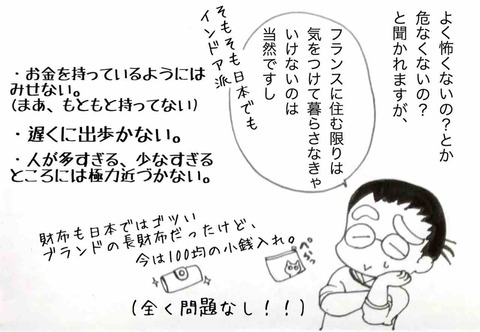 よく怖くないの？とか
危なくないの？
と聞かれますが、
フランスに住む限りは
気をつけて暮らさなきゃ
いけないのは
当然ですし
そもそも日本でも
インドア派
・お金を持っているようには
みせない。
（まあ、もともと持ってない）
・遅くに出歩かない。
・人が多すぎる、少なすぎる
ところには極力近づかない。
財布も日本ではゴツい
ブランドの長財布だったけど、
今は100均の小銭入れ。
ぺらっ
（全く問題なし！！）